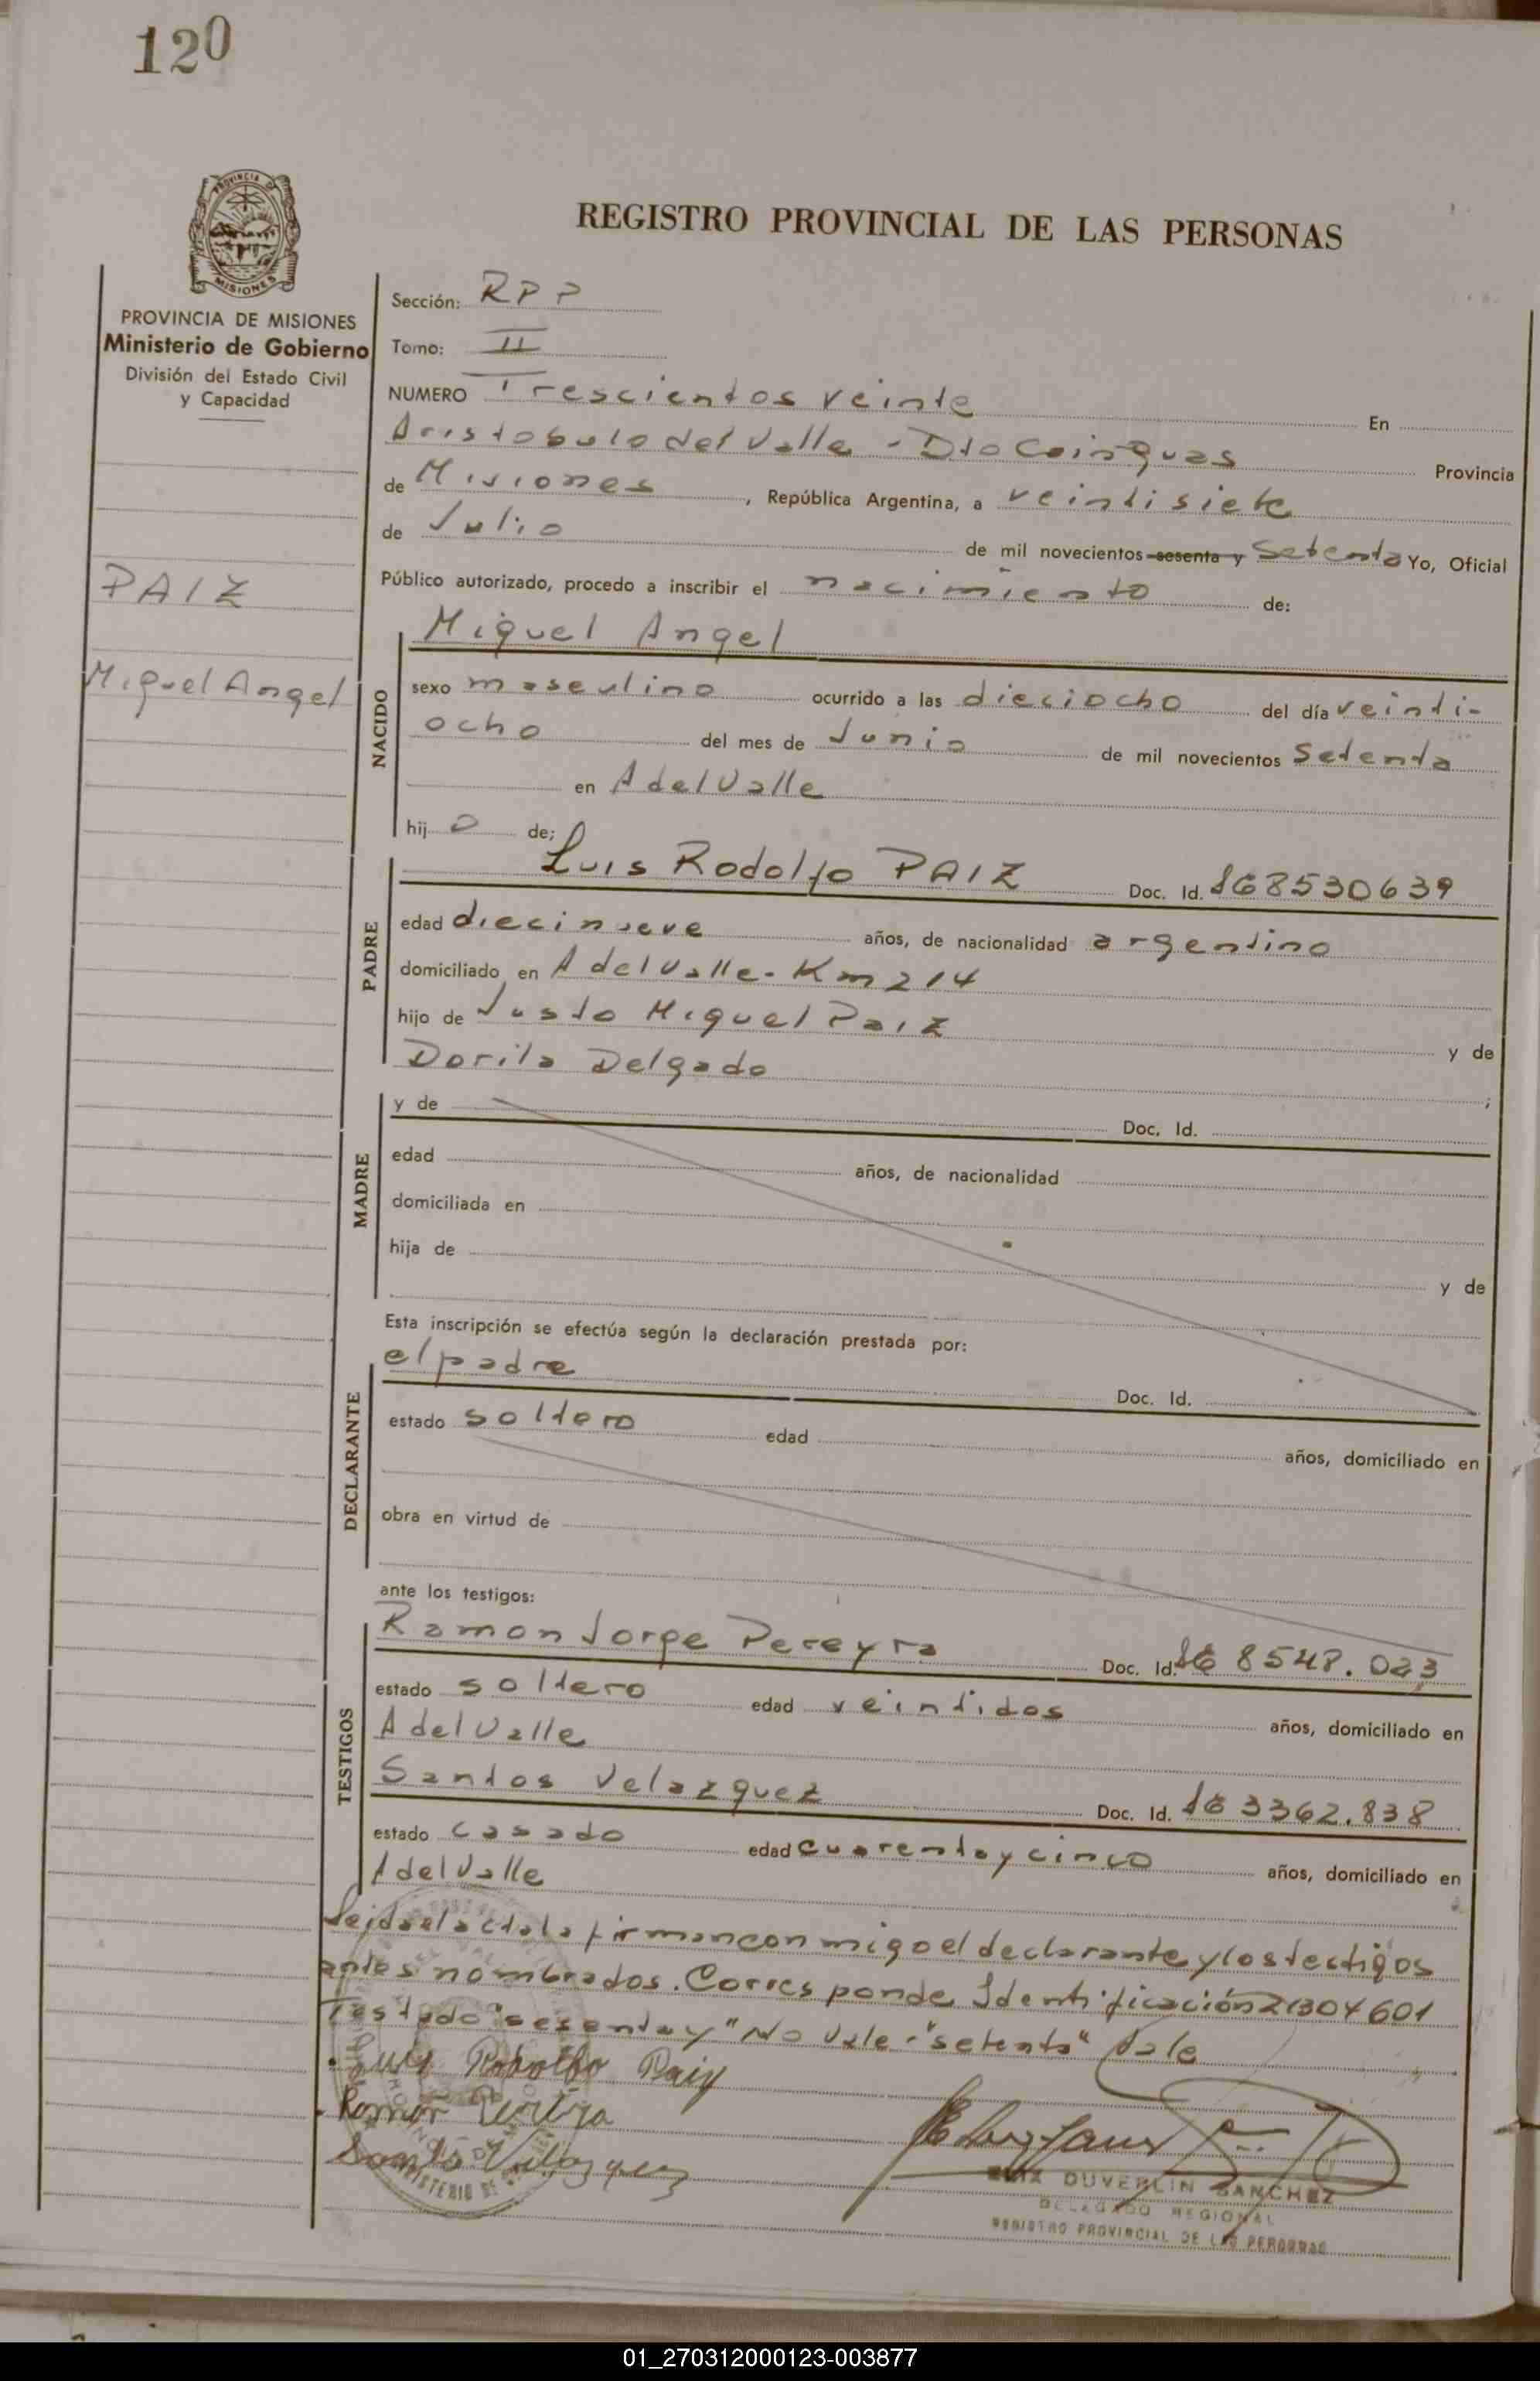 120
REGISTRO PROVINCIAL DE LAS PERSONAS
PROVINCIA DE MISIONES
PROVINCIA DE MISIONES
Ministerio de Gobierno
División del Estado Civil
y Capacidad
PAIZ
Miguel Angel
Sección: RPP
Tomo: II
NUMERO Trescientos veinte En
Aristobulo del Valle - Dto Cainguas Provincia
de Misiones, República Argentina, a veintisiete
de Julio de mil novecientos sesenta y Setenta Yo, Oficial
Público autorizado, procedo a inscribir el nacimiento de:
NACIDO
Miguel Angel
sexo masculino ocurrido a las dieciocho del día veinti-
ocho del mes de Junio de mil novecientos Setenta
en A del Valle
hijo de;
PADRE
Luis Rodolfo PAIZ Doc. Id. 168530639
edad diecinueve años, de nacionalidad argentino
domiciliado en A del Valle - Km 214
hijo de Justo Miguel Paiz y de
Dorila Delgado ;
MADRE
y de Doc. Id.
edad años, de nacionalidad
domiciliada en
hija de y de
Esta inscripción se efectúa según la declaración prestada por:
DECLARANTE
el padre Doc. Id.
estado soltero edad años, domiciliado en
obra en virtud de
ante los testigos:
TESTIGOS
Ramon Jorge Pereyra Doc. Id. 8548.023
estado soltero edad veintidos años, domiciliado en
A del Valle
Santos Velazquez Doc. Id. 3362.838
estado casado edad cuarenta y cinco años, domiciliado en
A del Valle
Leida el acta la firman conmigo el declarante y los testigos
antes nombrados. Corresponde Identificación 21304601
Testado "sesenta y" No Vale - "setenta" Vale
Luis Rodolfo Paiz
Ramon Pereyra
Santos Velazquez
DUVERLIN SANCHEZ
DELEGADO REGIONAL
REGISTRO PROVINCIAL DE LAS PERSONAS
01_270312000123-003877